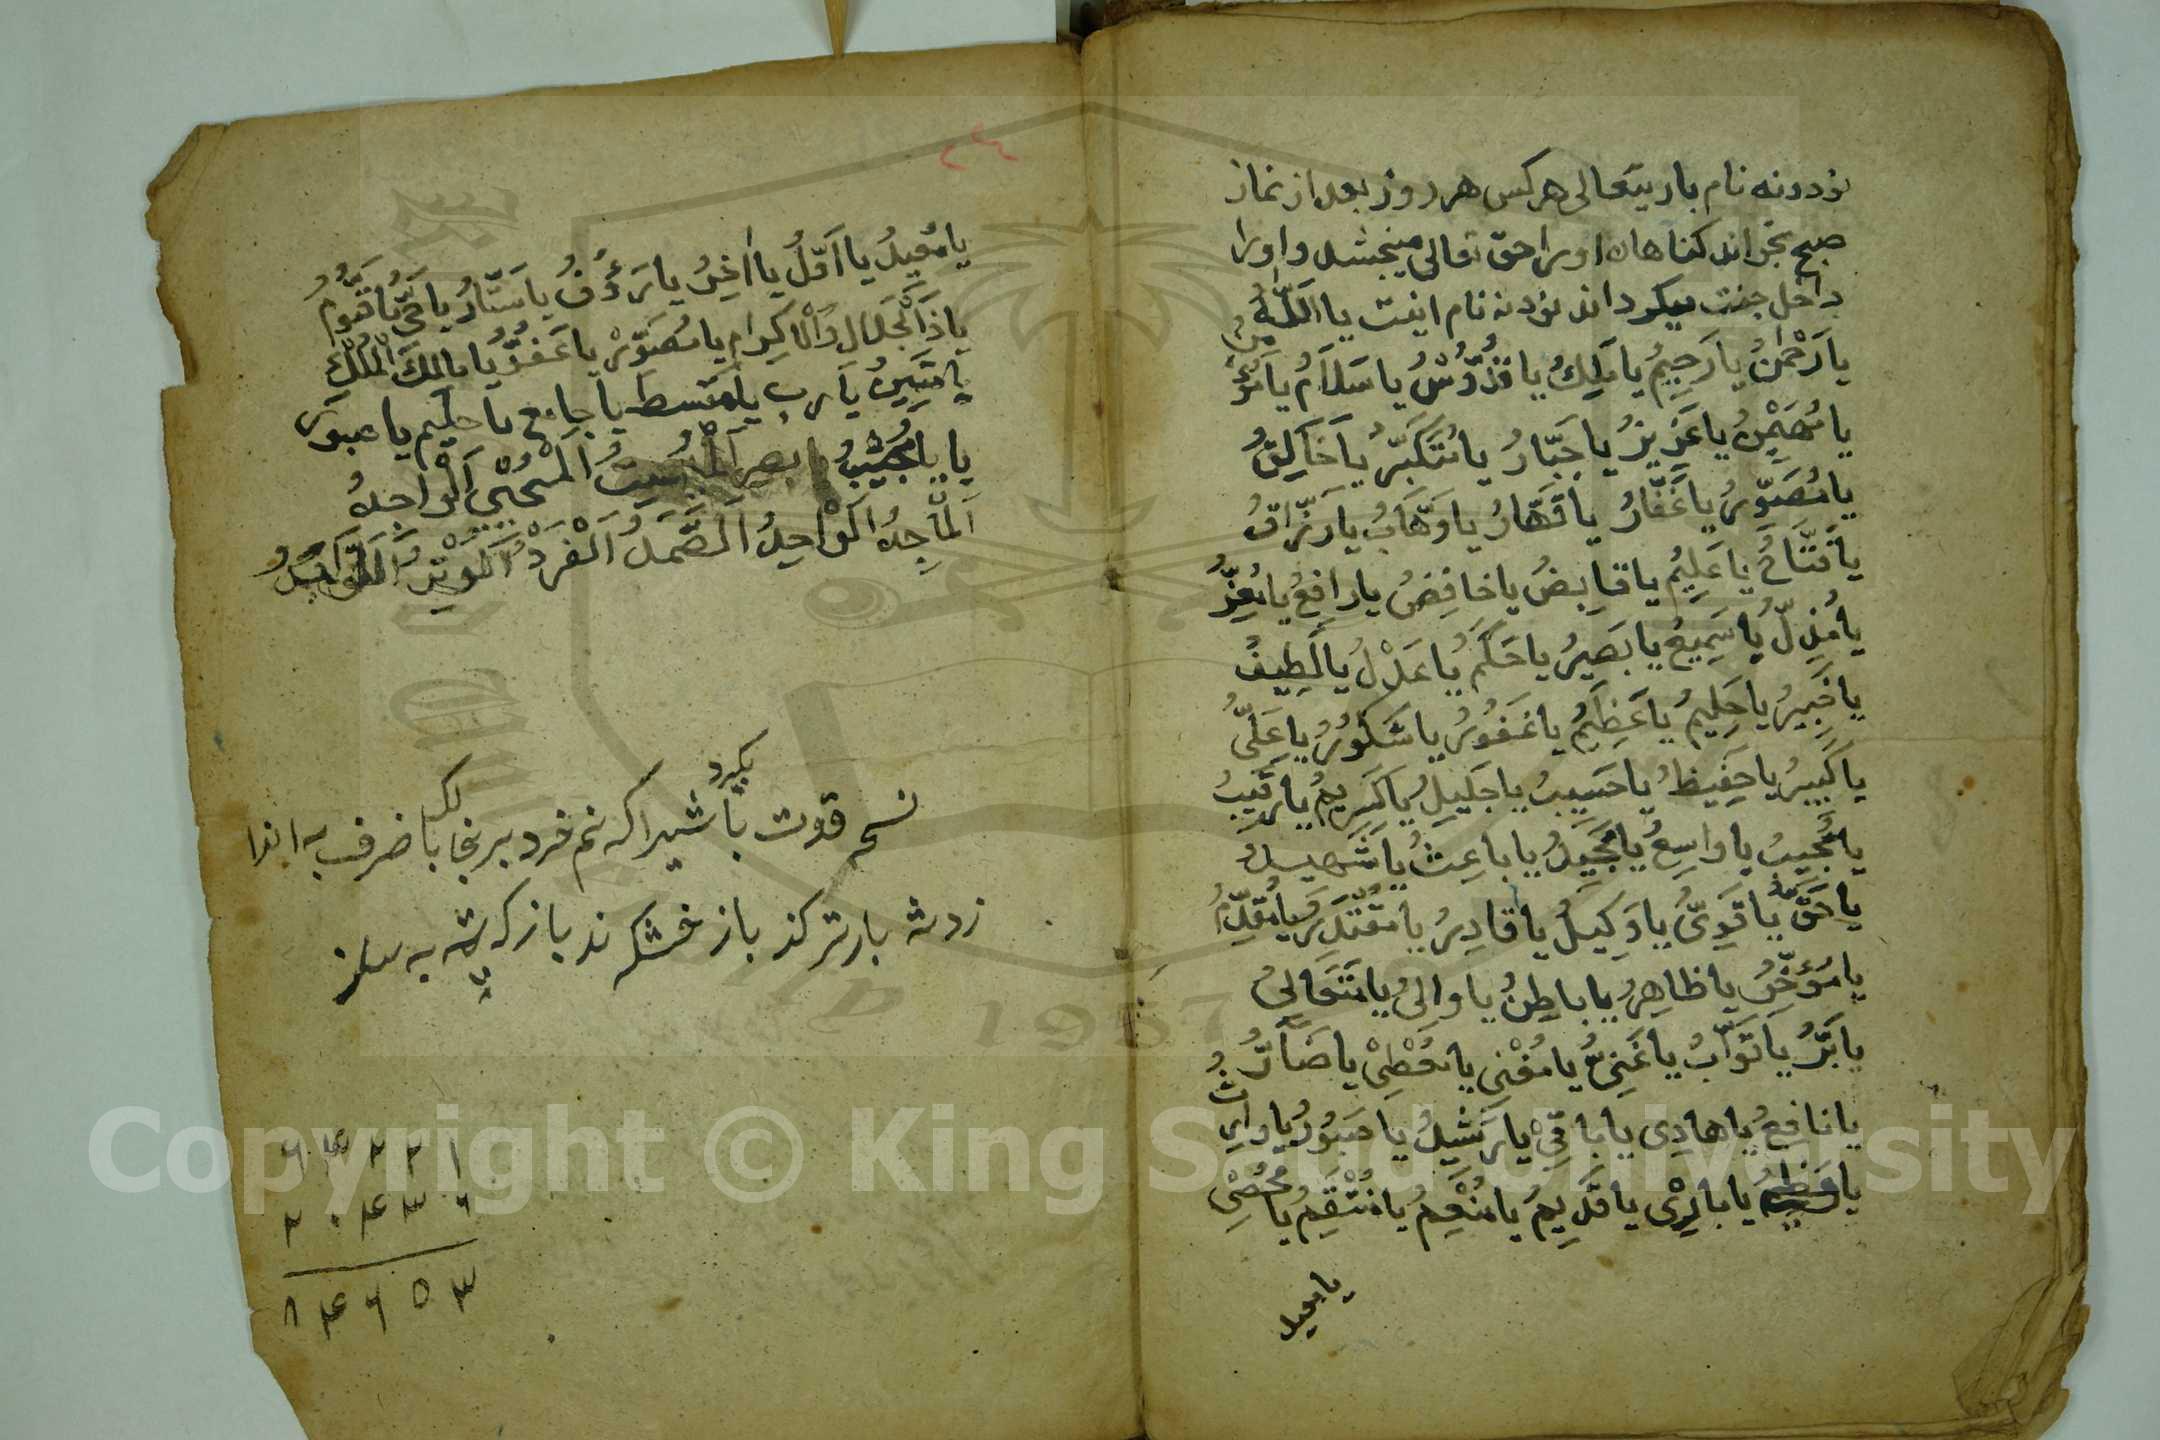 نودونه نام باریتعالی هرکس هر روز بعد از نماز
صبح بخواند کناهان اورا حق تعالی میبخشد و اورا
داخل جنت میکرداند نودنه نام اینت یا اَللّٰهُ
یا رَحْمٰنُ یا رَحِیمُ یا مَلِكُ یا قُدُّوْسُ یا سَلَامُ یا مُؤْمِنُ
یا مُهَیْمِنُ یا عَزِیزُ یا جَبَّارُ یا مُتَکَبِّرُ یا خَالِقُ
یا مُصَوِّرُ یا غَفَّارُ یا قَهَّارُ یا وَهَّابُ یا رَزَّاقُ
یا فَتَّاحُ یا عَلِیْمُ یا قابِضُ یا خافِضُ یا رافِعُ یا مُعِزُّ
یا مُذِلُّ یا سَمِیعُ یا بَصِیرُ یا حَکَمُ یا عَدْلُ یا لَطِیفُ
یا خَبِیرُ یا حَلِیمُ یا عَظِیمُ یا غَفُوْرُ یا شَکُوْرُ یا عَلِیُّ
یا کَبِیرُ یا حَفِیظُ یا حَسِیبُ یا جَلِیلُ یا کَرِیمُ یا رَقِیبُ
یا مُجِیبُ یا واسِعُ یا مَجِیدُ یا باعِثُ یا شَهِیدُ
یا حَقُّ یا قَوِیُّ یا وَکِیلُ یا قادِرُ یا مُقْتَدِرُ یا مُقَدِّمُ
یا مُؤَخِّرُ یا ظاهِرُ یا باطِنُ یا والِیُ یا مُتَعَالِیُ
یا بَرُّ یا تَوَّابُ یا غَنِیُّ یا مُغْنِی یا مُعْطِیْ یا ضَارُّ
یا نافِعُ یا هادِی یا باقِیْ یا رَشِیدُ یا صَبُوْرُ یا وارِثُ
یا عَظِیمُ یا بارِیْ یا قَدِیمُ یا مُنْعِمُ یا مُنْتَقِمُ یا مُحْصِیْ
یا معید
یا مُعِیدُ یا اَوَّلُ یا اٰخِرُ یا رَؤُفُ یا سَتَّارُ یا حَیُّ یا قَیُّوْمُ
یا ذَا الْجَلَالِ وَالْاِکِرَامِ یا مُصَوِّرْ یا عَفُوُّ یا مالِكَ الْمُلْكِ
یا مَتِینُ یا رب یا مقسط یا جامع یا حلیم یا صبور
یا یا مُجِیْبُ یا بصیر اَلْمُمِیتُ اَلْمُحْیِیْ اَلْواجِدُ
اَلْمَاجِدُ اَلْواحِدُ اَلصَّمَدُ اَلْفَرْدُ اَلْوِتْرُ
نسخ قوت با شیر اکه نم خرد برنجا با ظرف به اندا
بکیرد
لک
زدشه بار تر کند باز خشک ند باز که
۶۴۲۲۱
۲۰۴۳۶
۸۴۶۵۳
Copyright © King Saud University
1957